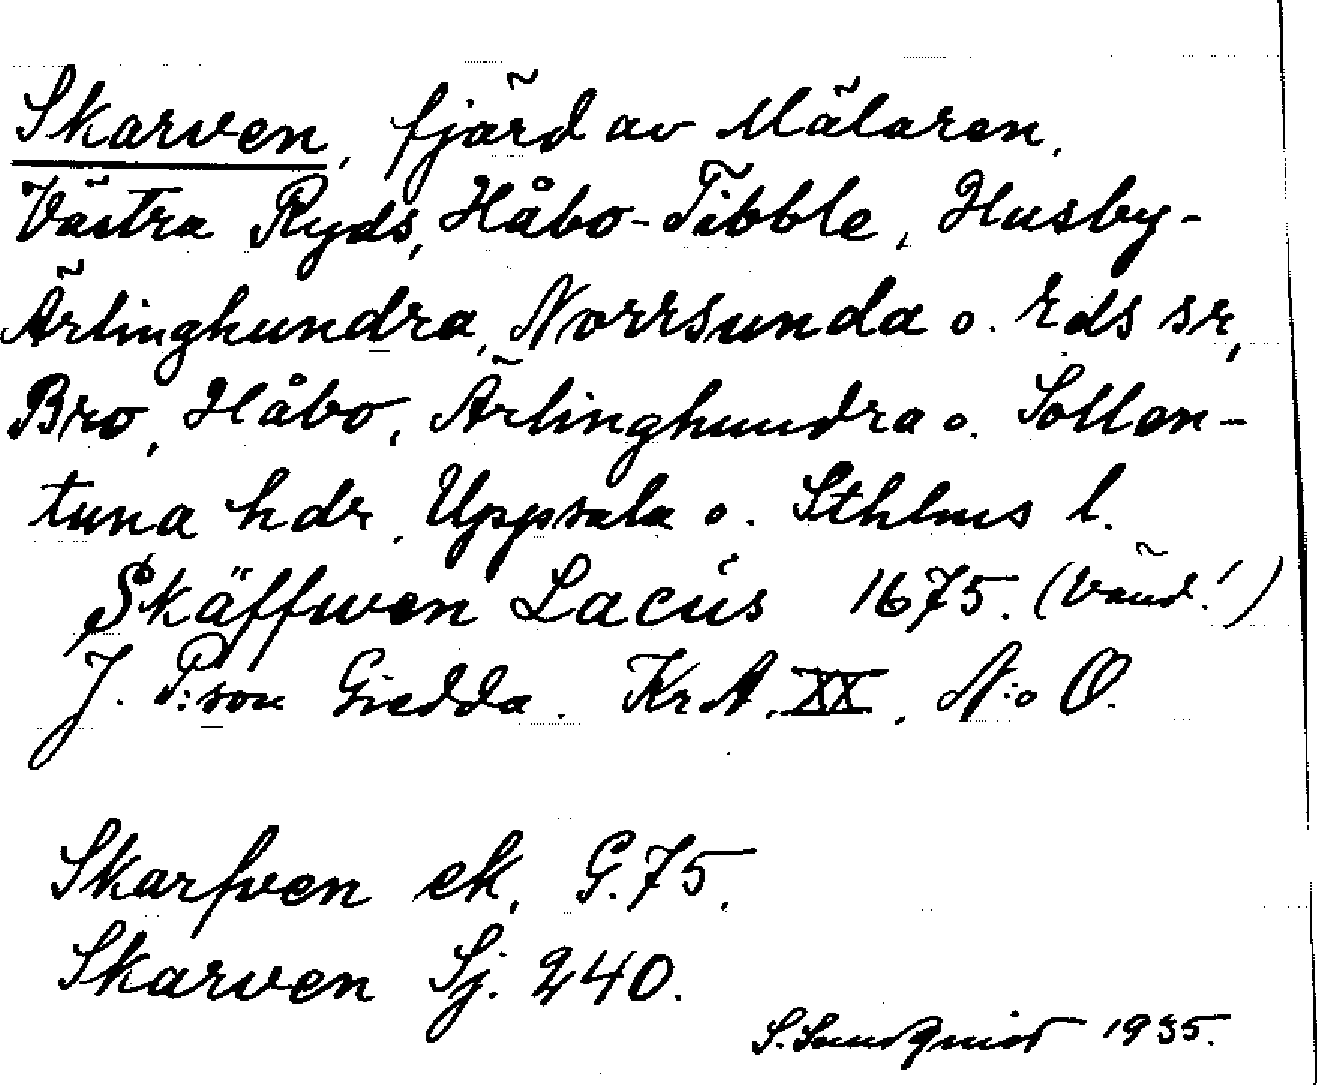 Skarven, fjärd av Mälaren,
Västra Ryds, Håbo-Tibble, Husby-
Ärlinghundra, Norrsunda o. Eds sr,
Bro, Håbo, Ärlinghundra o. Sollen-
tuna hdr, Uppsala o. Sthlms l.
Skäffwen Lacús 1675. (Vänd!)
J. P:son Giedda. KrA, XX, N:o O.
Skarfven ek. G.75.
Skarven Sj. 240.
S. Sundquist 1935.